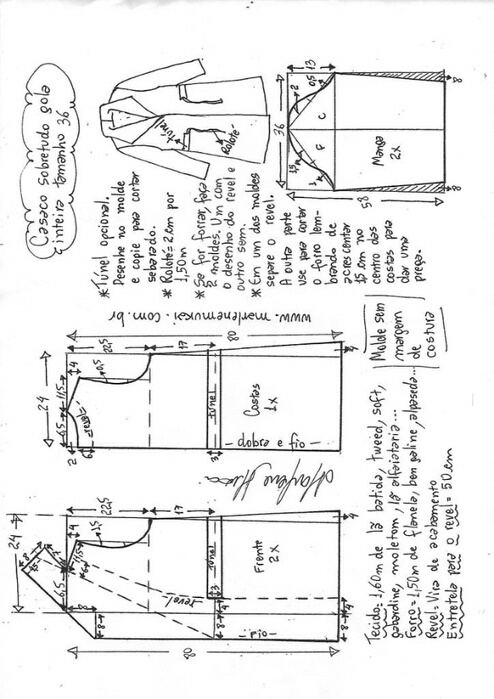 Casaco Sobretudo gola
inteira tamanho 36
*Túnel opcional.
Desenhe no molde
e copie para cortar
separado.
* Rolotê = 2 cm por
1,50m
* Se for forrar, faça
2 moldes. Um com
o desenho do revel e
outro sem.
* Em um dos moldes
separe o revel.
A outra parte
use para cortar
o forro lem-
brando de
acrescentar
15 cm no
centro das
costas para
dar uma
prega.
Túnel
Rolotê
13
2
0,5
36
C
F
1,5
1
Manga
2x
58
8
8
www.marlenemukai.com.br
80
24
22,5
17
4
11,5
6,5
0,5
revel
2
6
Túnel
3
Costas
1x
fio e dobra
4
Marlene Mukai
24
22,5
17
4
1,5
11,5
6,5
8
8
revel
Túnel
3
4
Frente
2x
fio
8
4
8
4
4
80
Molde sem
margem
de
costura
Tecido: 1,60m de lã batida, tweed, soft,
gabardine, moletom, lã alfaiataria...
Forro = 1,50m de flanela, bengaline, alpaseda...
Revel = Vira de acabamento
Entretela para o revel = 50 cm